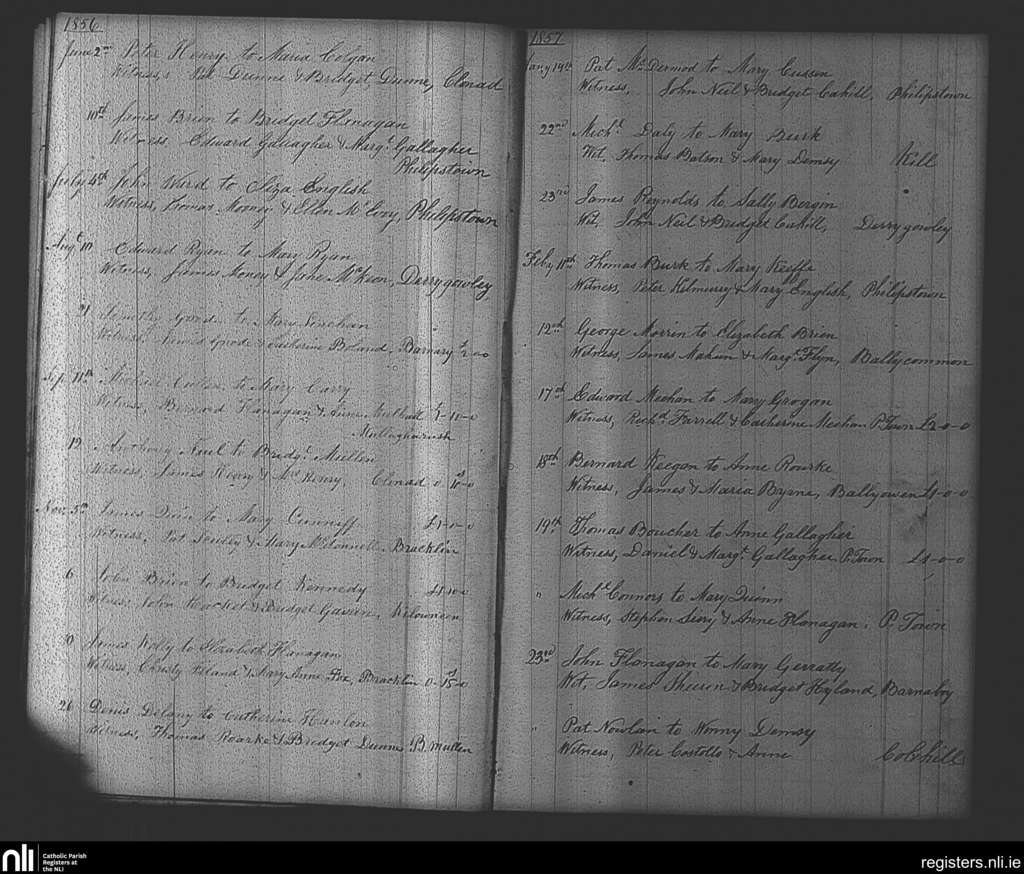 1856
June 2nd Peter Henry to Maria Colgan
Witness Pat Dunne & Bridget Dunne, Clonad
10th James Brien to Bridget Flanagan
Witness, Edward Gallagher & Margt. Gallagher
Philipstown
July 4th John Ward to Eliza English
Witness, Thomas Mooney & Ellen McEvoy, Philipstown
Augt 10 Edward Ryan to Mary Ryan
Witness, James Money & Jane McKeon, Derrygowley
21 Timothy Good to Mary Linehan
Witness, James Good & Catherine Boland, Barnary £2-0-0
Sep. 11th Michael to Mary Carry
Witness, Bernard Flanagan & Anne £1-10-0
12 Anthony to Bridgt. Mullen
Witness, James & Mrs Henry, Clonad 0-10-0
Nov. 5th James Quin to Mary Cunniff £1-0-0
Witness, Pat & Mary McDonnell, Bracklin
6 John Brien to Bridget Kennedy £1-0-0
Witness, John Hacket & Bridget Gavin,
James Kelly to Elizabeth Flanagan
Witness, Christy Hiland & Mary Anne Fox, Bracklin 0-15-0
26 Denis Delany to Catherine Hanlon
Witness, Thomas Roarke & Bridget Dunne B. Mullen
1857
Jany 14th Pat McDermod to Mary Cussen
Witness, John Neil & Bridget Cahill, Philipstown
22nd Michl. Daly to Mary Burk
Wit. Thomas Batson & Mary Demsy Kill
23rd James Reynolds to Sally Bergin
Wit, John Neil & Bridget Cahill, Derrygowley
Feby 11th Thomas Burk to Mary Keeffe
Witness, Peter Kilmurry & Mary English, Philipstown
12th George Morrin to Elizabeth Brien
Witness, James Mahon & Margt. Flyn, Ballycommon
17th Edward Meehan to Mary Grogan
Witness, Richd. Farrell & Catherine Meehan P. Town £2-0-0
18th Bernard Keegan to Anne Rourke
Witness, James & Maria Byrne, Ballyowen £1-0-0
19th Thomas Boucher to Anne Gallagher
Witness, Daniel & Margt. Gallagher P. Town £1-0-0
" Michl Connors to Mary Quinn
Witness, Stephen & Anne Flanagan. P. Town
23rd John Flanagan to Mary Gerratty
Wit, James Sheerin & Bridget Hyland, Barnabry
" Pat Nowlan to Demsy
Witness, Peter Costollo & Anne Colehill
nli
Catholic Parish
Registers at
the NLI
registers.nli.ie